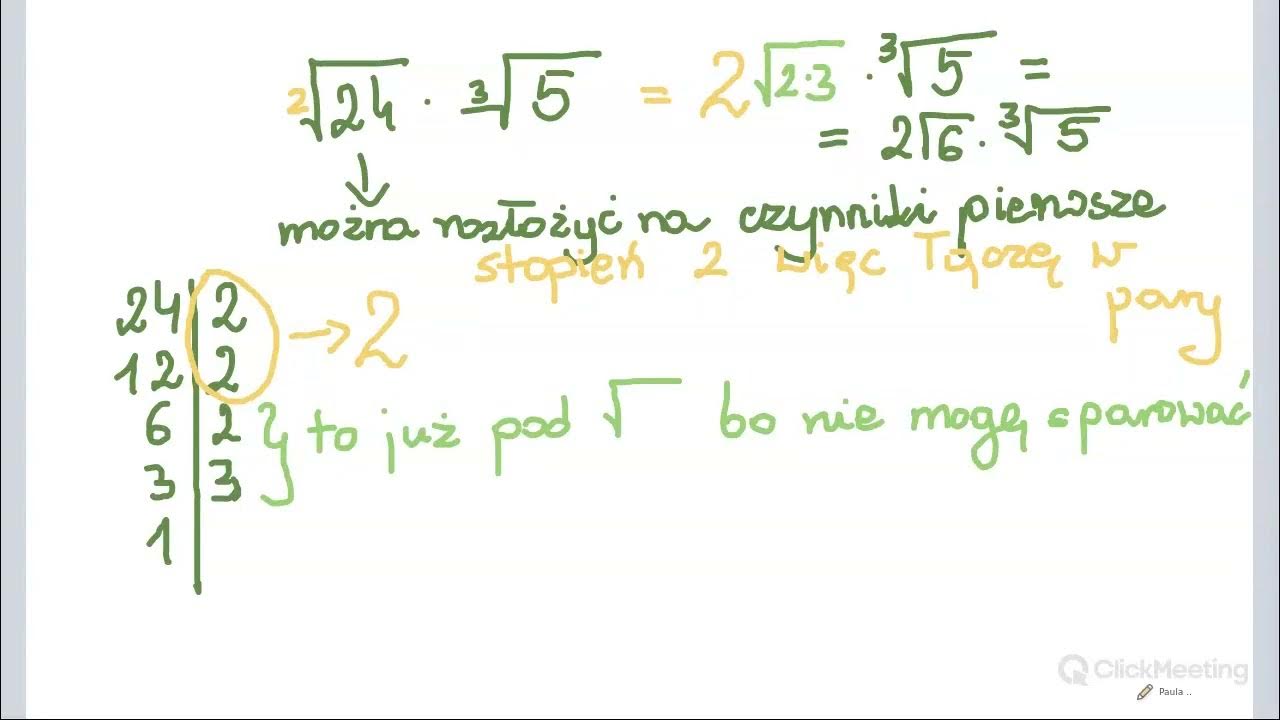 ²√24 · ³√5 = 2√2·3 · ³√5 =
= 2√6 · ³√5
↓
można rozłożyć na czynniki pierwsze
stopień 2 więc łączę w
pary
24 | 2
12 | 2 → 2
6 | 2 } to już pod √ bo nie mogę sparować
3 | 3
1 |
ClickMeeting
Paula ..